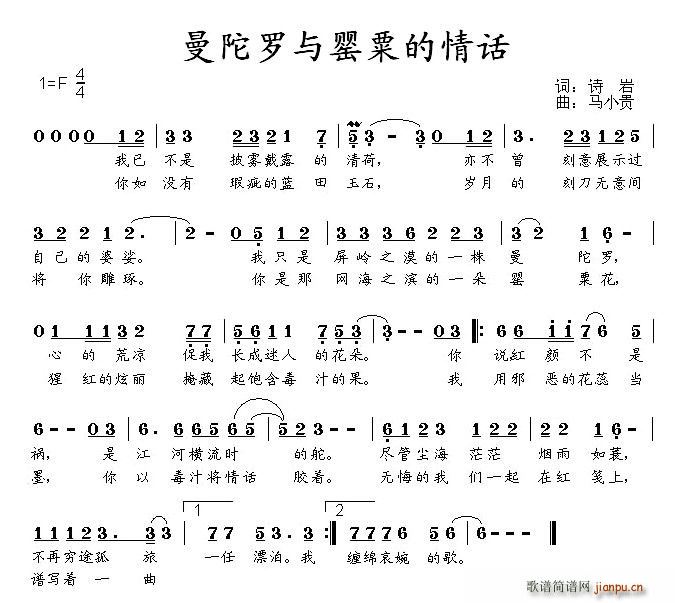 曼陀罗与罂粟的情话
1=F 4/4
词：诗岩
曲：马小贵
0 0 0 0 1 2 | 3 3 2 3 2 1 7 | 5 3 - 3 0 1 2 | 3. 3 2 1 2 3 |
我已 不是 披雾戴露 的 清荷， 亦不 曾 刻意展示过
你如 没有 瑕疵的蓝 田 玉石， 岁月 的 刻刀无意间
3 2 2 2 1 2. | 2 - 0 5 1 2 | 3 3 3 3 6 2 2 2 | 3 2 1 6 - |
自己的 婆娑。 我只是 屏岭之漠的一株 曼 陀罗，
将 你 雕琢。 你是那 网海之滨的一朵 罂 粟花，
0 1 1 1 3 2 7 7 | 5 6 1 1 7 5 3 | 3 - - 0 3 | : 6 6 i i 7 6 5 |
心 的 荒凉 促我 长成迷人 的花朵。 你 说红 颜 不 是
猩 红的炫丽 掩藏 起饱含毒 汁的果。 我 用邪 恶的花蕊 当
6 - - 0 3 | . 6 6 5 6 6 5 | 5 2 3 - - | 0 1 2 3 2 2 | 1 2 1 6 - |
祸， 是 江 河横流时 的舵。 尽管尘海 茫茫 烟雨 如蓑，
墨， 你 以 毒汁将情话 胶着。 无悔的我 们一起 在红 笺上，
1 1 1 2 3. 3 3 | 1 7 7 5 3. 3 : | 2 7 7 7 6 5 6 | 6 - - 0 |
不再穷途孤 旅 一任 漂泊。我 缠绵哀婉 的歌。
谱写着 一 曲
歌谱简谱网
jianpu.cn